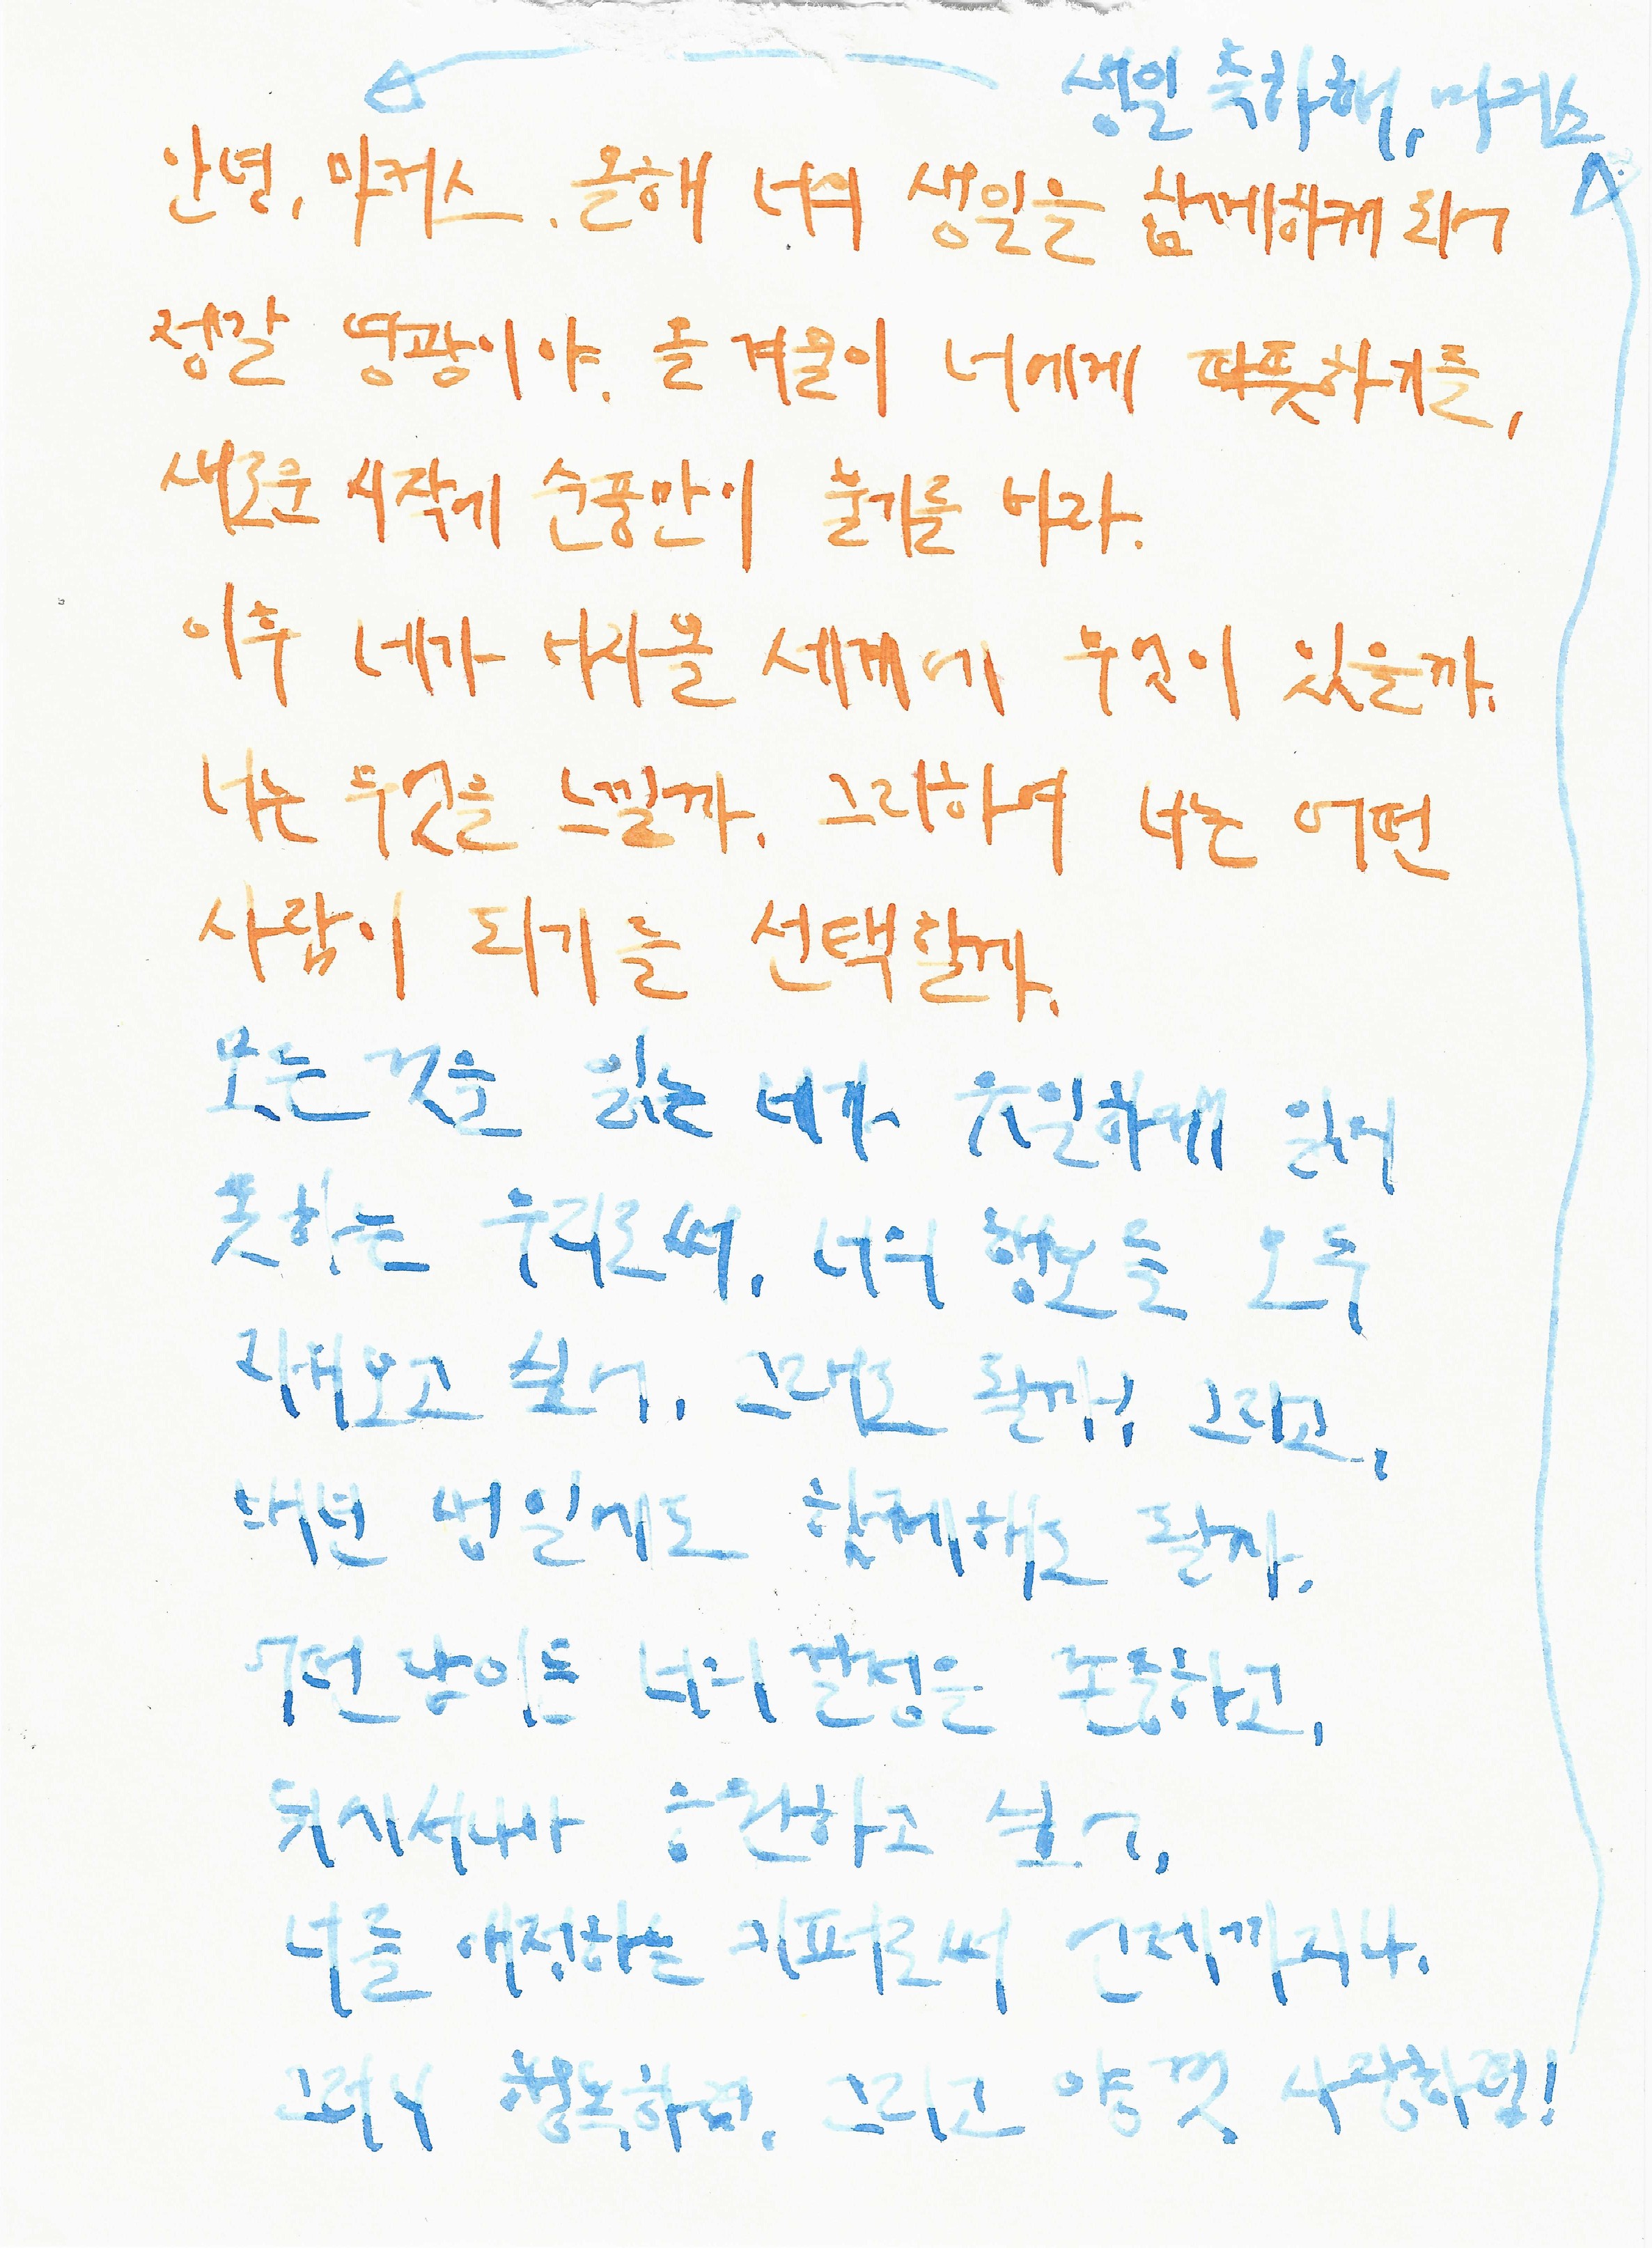 생일 축하해, 마커스
안녕, 마커스. 올해 너의 생일을 함께하게 되어
정말 영광이야. 올 겨울이 너에게 따뜻하기를,
새로운 시작에 순풍만이 불기를 바라.
이후 네가 나아올 세계에 무엇이 있을까.
너는 무엇을 느낄까. 그리하여 너는 어떤
사람이 되기를 선택할까.
모든 것을 읽는 네가 유일하게 읽지
못하는 우리로써, 너의 행보를 모두
지켜보고 싶어. 그래도 될까? 그리고,
매년 생일에도 함께해도 될까.
어떤 날이든 너의 결정을 존중하고,
뒤에서나마 응원하고 싶어,
너를 애정하는 키퍼로써 언제까지나.
그러니 행복하렴, 그리고 양껏 사랑하렴!